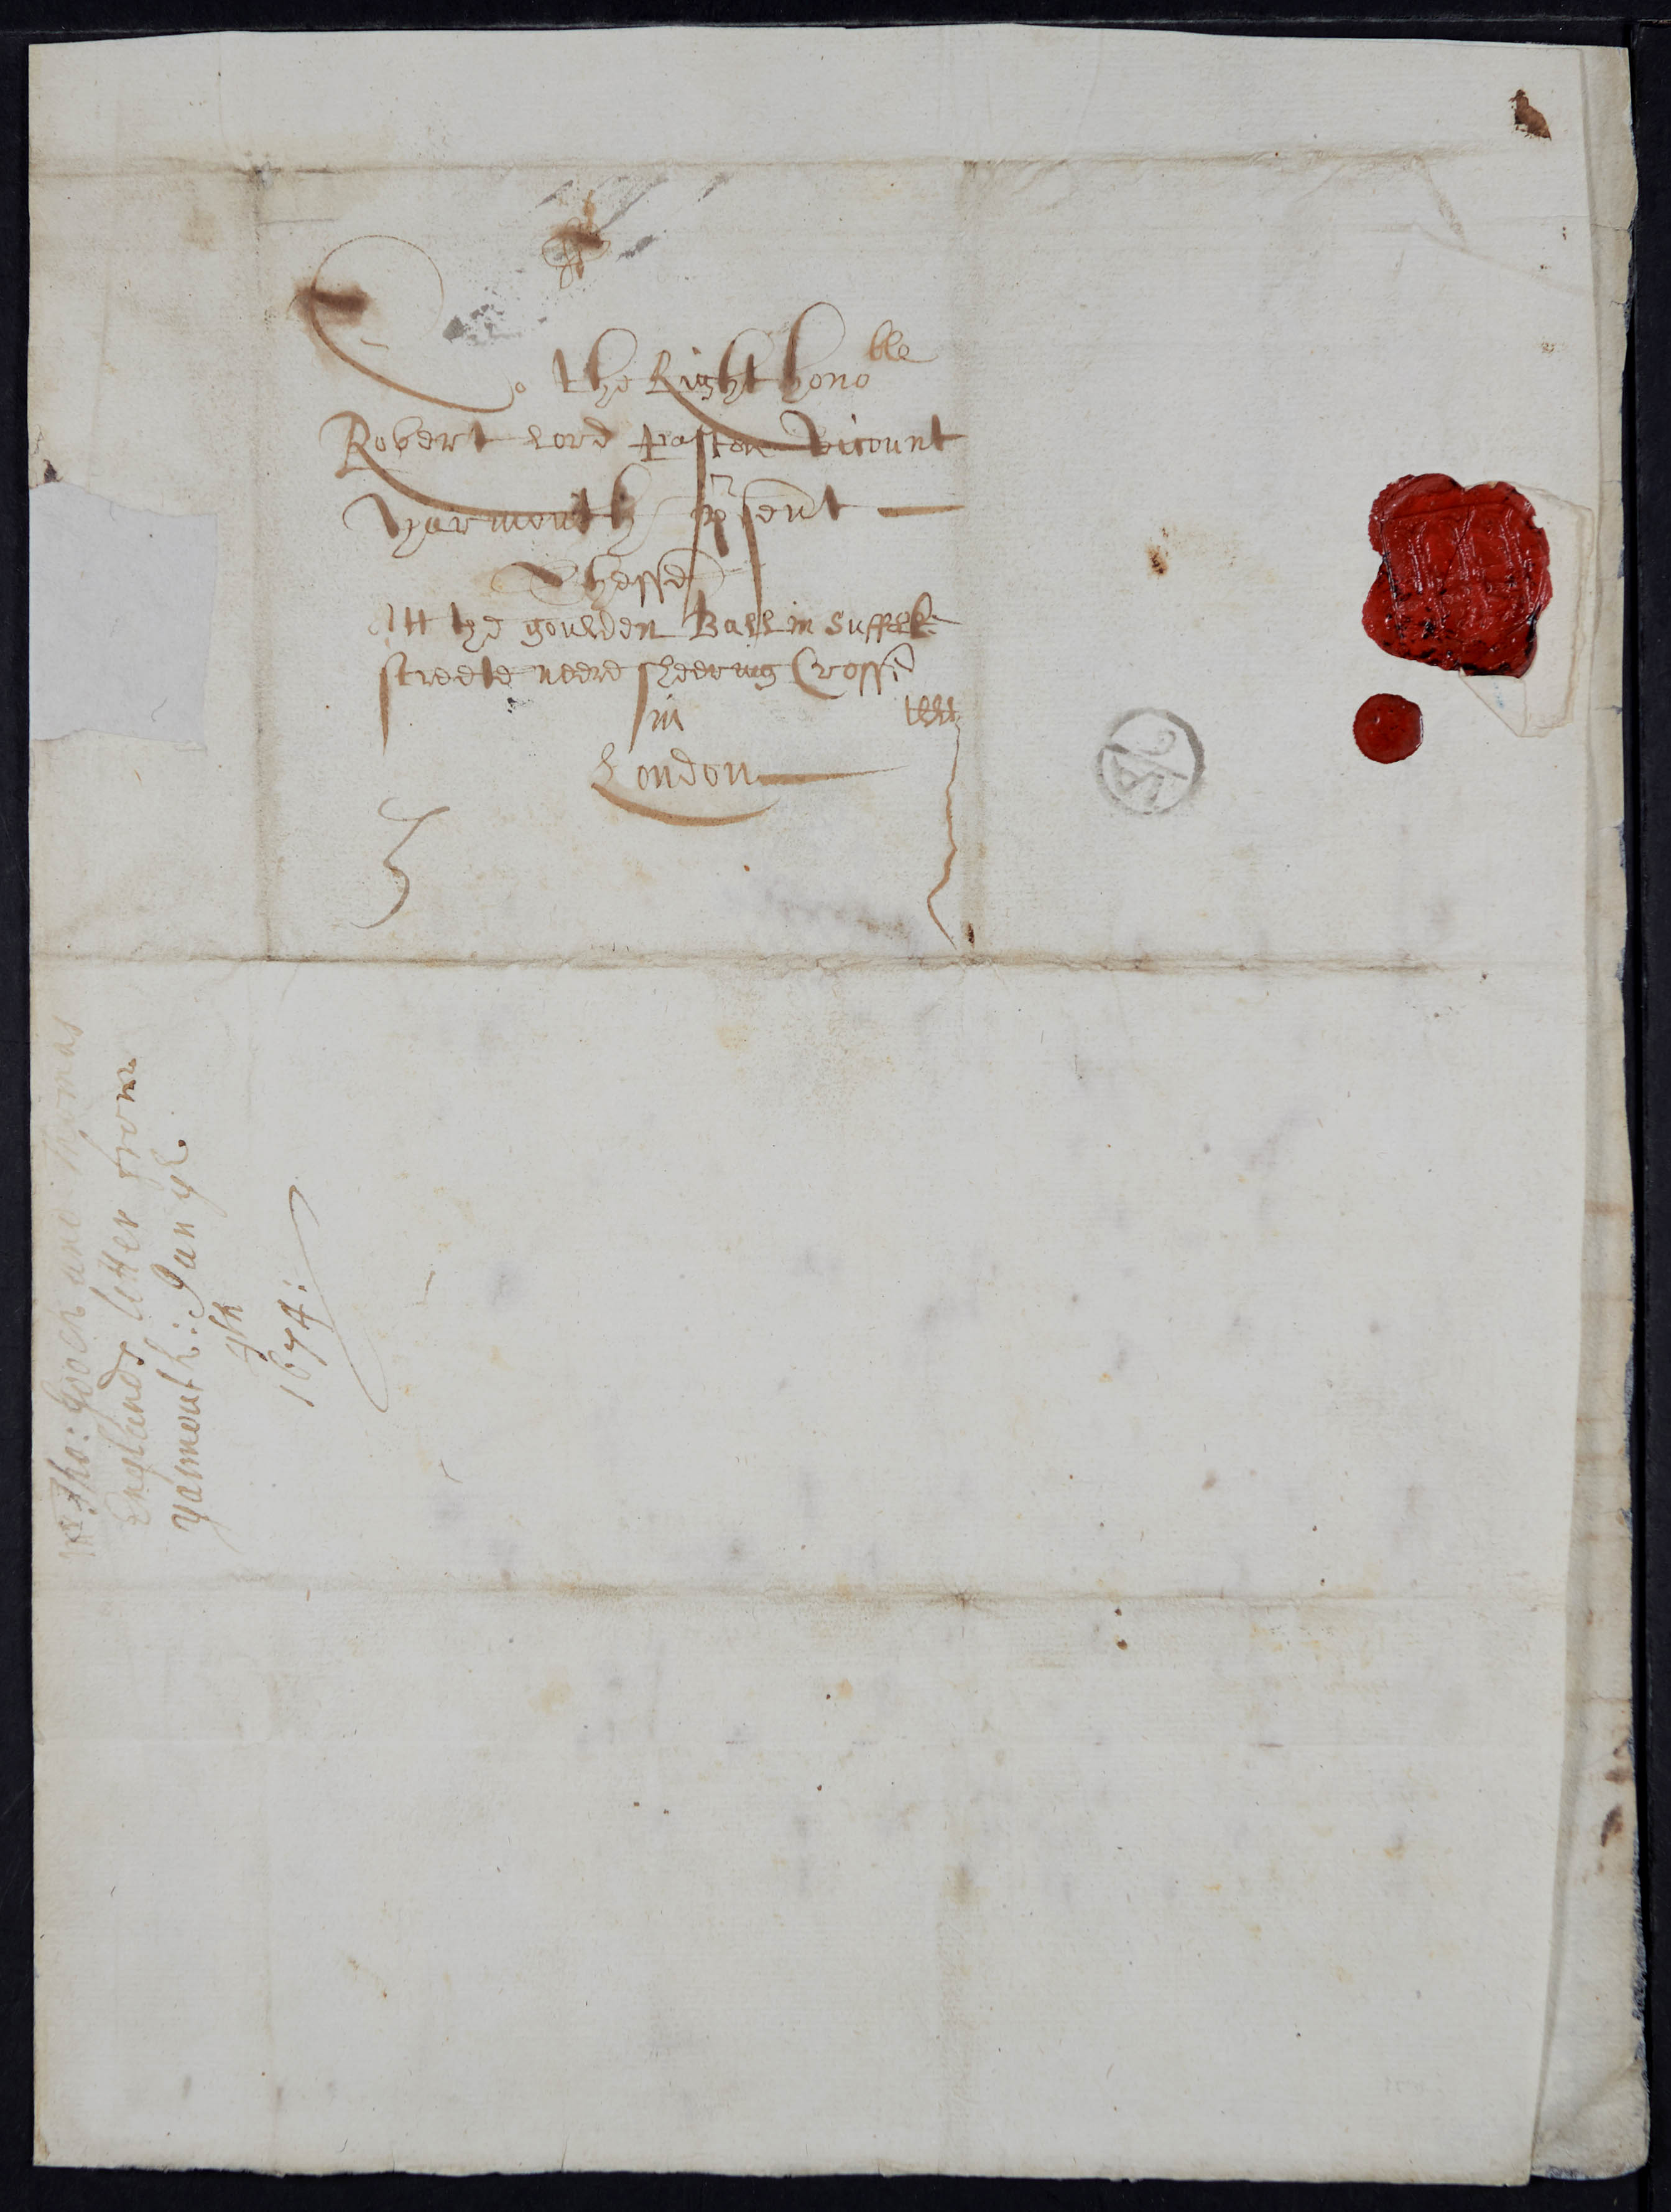 To the Right hono^ble
Robert Lord Paston Vicount
Yarmouth psent
Thesse
Att the goulden Ball in Suffolk
streete neere sheering Crosse
in
London
3
Mr. Tho: Gooch and Thomas
Englands letter from
Yarmouth: Jan ye
4th
1674:
IA
6